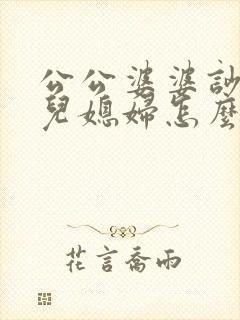 公公婆婆討
兒媳婦怎麼
花言喬雨